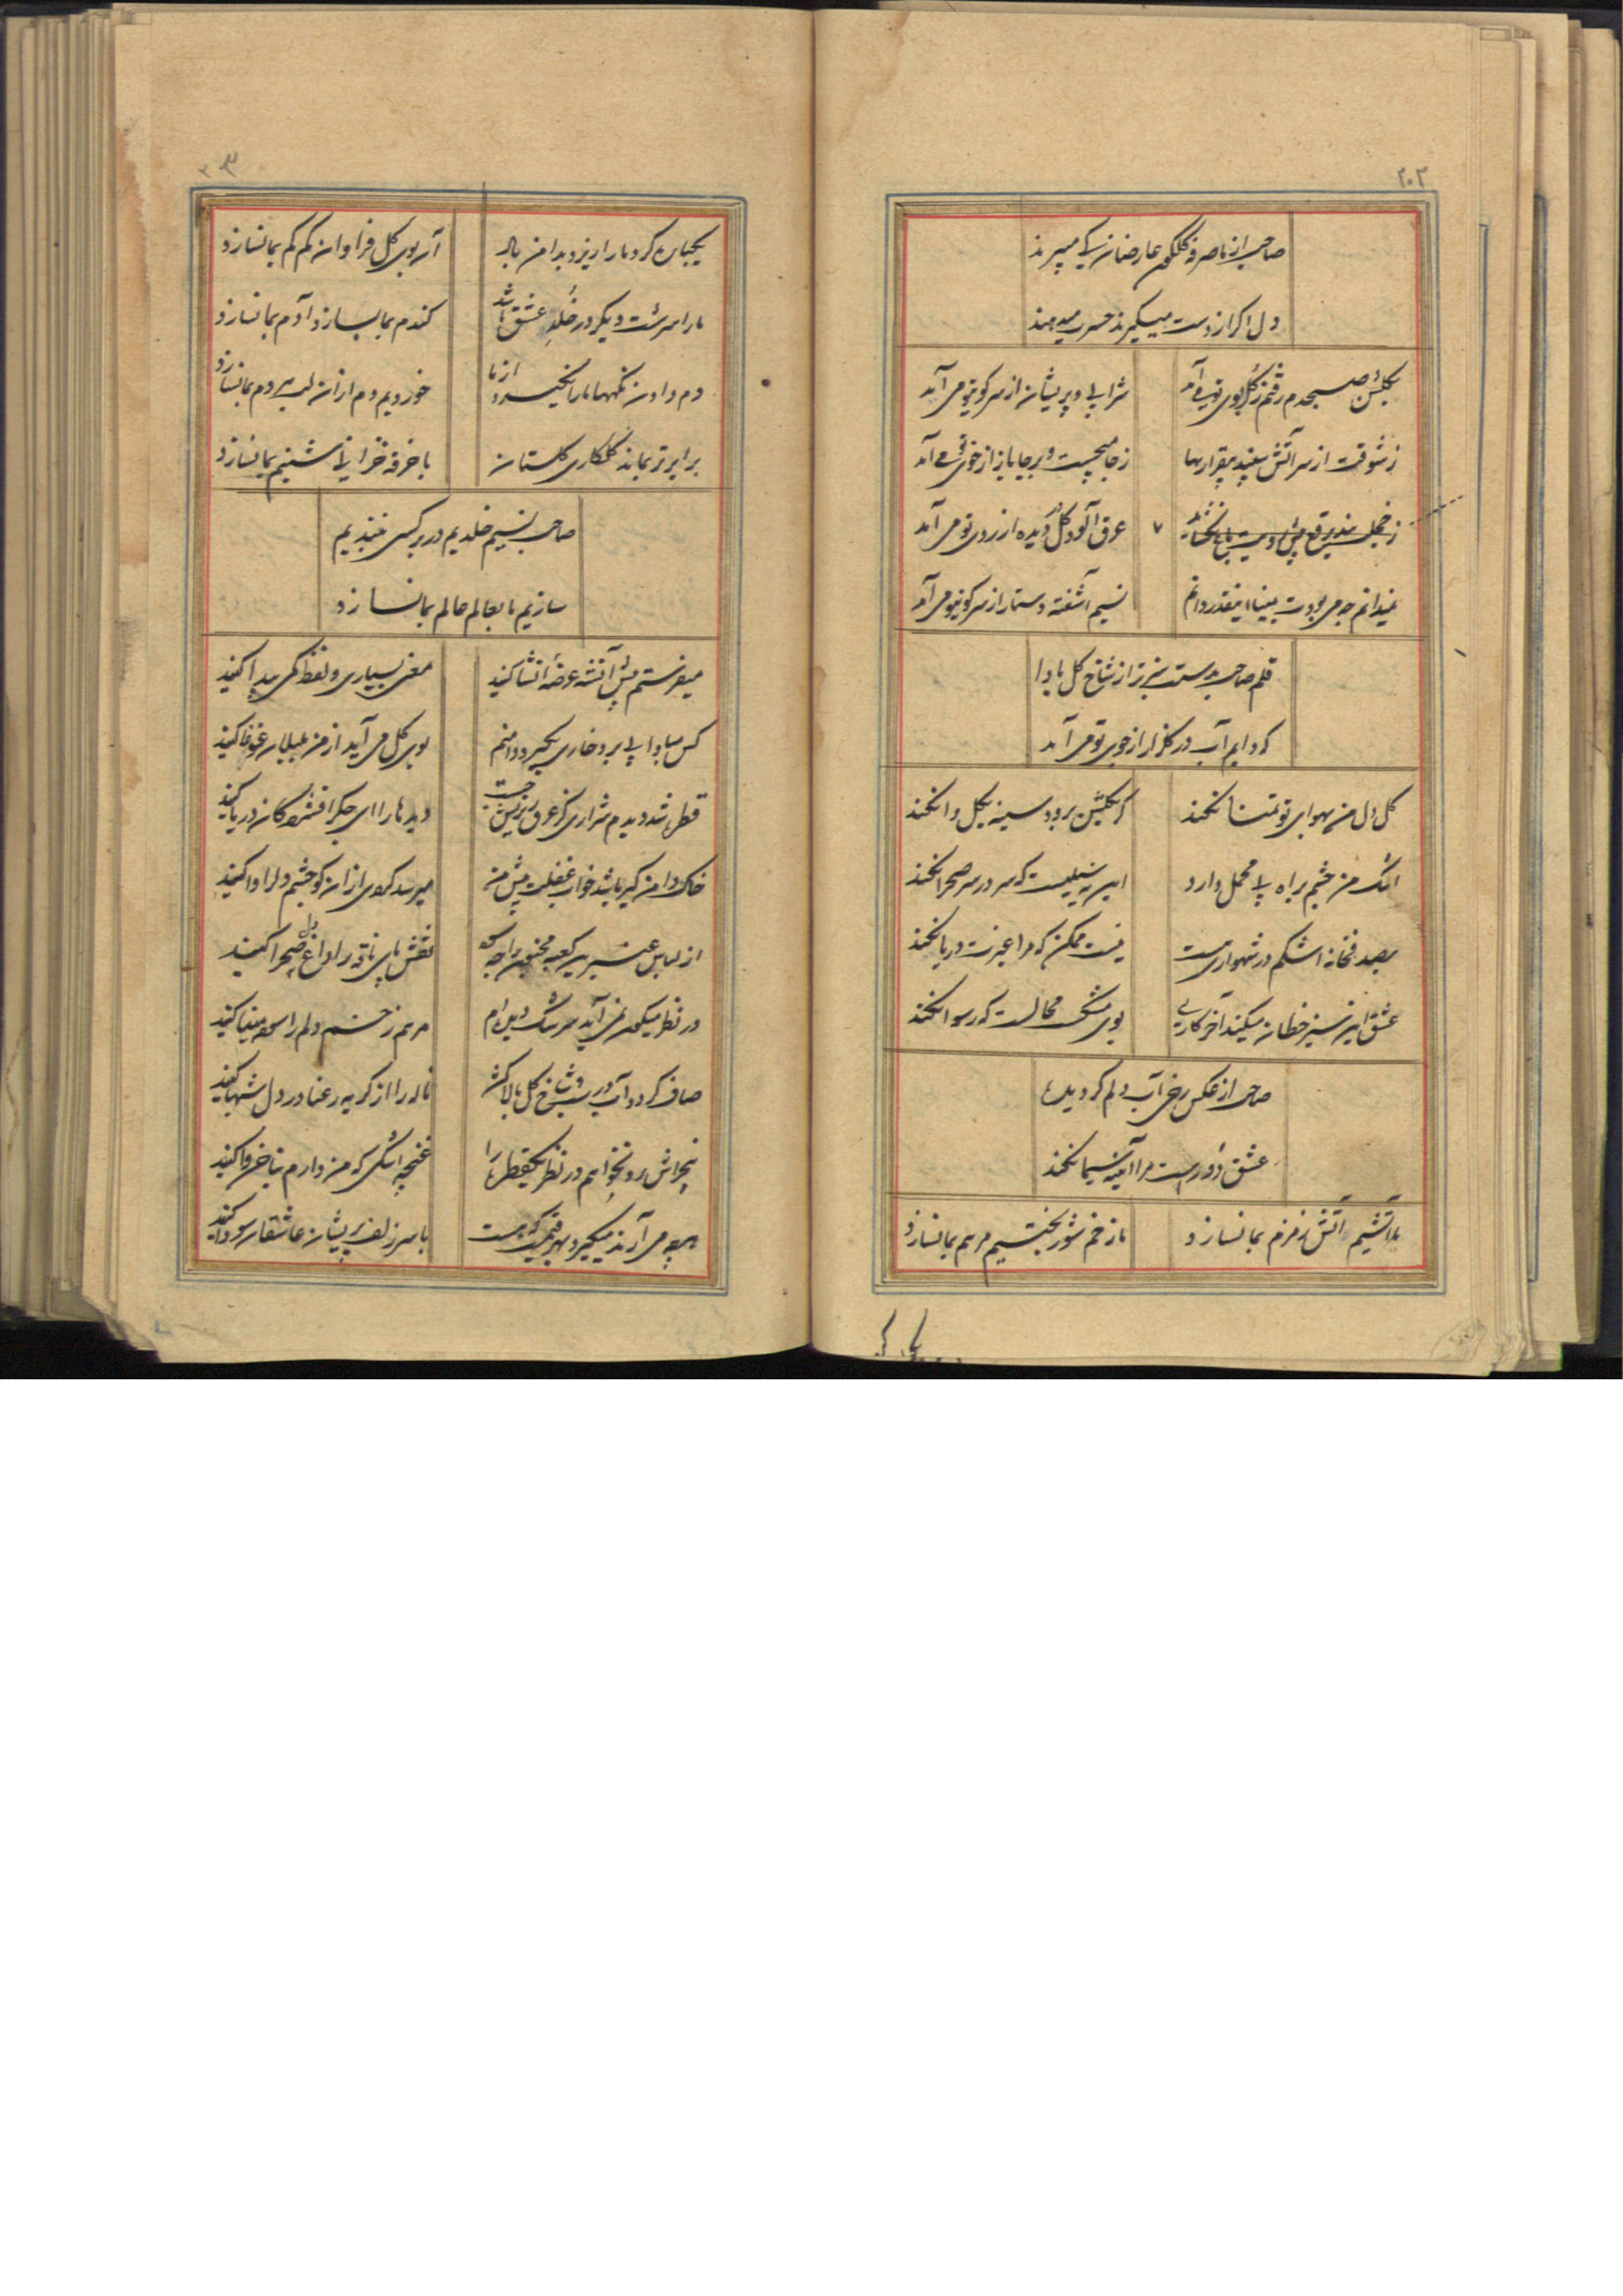 ۲۰۲
صاحب از ما صرفه گلگون عارضان کی میبرند
دل اگر از دست میگیرند حسرت میدهند
بگلشن صبحدم رفتم ز گل بوی تو می آمد
شرابی و پریشان از سر کوی تو می آمد
ز شوقت از سر آتش سپند بیقراریها
ز جا میجست و بر جا باز از خوی تو می آمد
عرق آلود گل دیده از روی تو می آمد
نمیدانم چه می بودت بمینا اینقدر دانم
نسیم آشفته دستار از سر کوی تو می آمد
قلم صاحب بدستت سبزتر از شاخ گل بادا
که دایم آب در گلزار از جوی تو می آمد
گل دل من بهوای تو تمنا نکند
گر بگلشن برود سینه بگل وا نکند
اشک من چشم براه پی محمل دارد
این سیلیست که سر در سر صحرا نکند
بصدفخانه اشکم در شهواری هست
نیست ممکن که مرا عبرت دریا نکند
عشق این سبز خطان میکند آخر کاری
بوی مشکست محالست که رسوا نکند
صاحب از عکس رخی آب دلم گردیده
عشق داورست مرا آینه سیما نکند
ما آتشیم آتش زمزم بما نسازد
ما زخم شوربختیم مرهم بما نسازد
یکجا
آن بوی گل فراوان کم کم بما نسازد
ما را سرشت دیگر در خلد عشق باشد
گندم بما بسازد آدم بما نسازد
دم دادن نگهها ما را نگیرد از ما
خوردیم دم از آن لب دم بما نسازد
برابر نماند گلکاری گلستان
با خرقه خزانی شبنم بما نسازد
صاحب نسیم خلدیم در بر کسی نبندیم
سازیم با بعالم عالم بما نسازد
میفرستم پیش آتش عرضه انشا کنید
معنی بسیاری و لفظ کمی پیدا کنید
کس مبادا پی برد خاری بگیرد دامنم
بوی گل می آید از من بلبلان غوغا کنید
قطره شد دیدم شراری کز عرق ریزیش جست
دیده را ای جگر افشردگان دریا کنید
خاک دامن گیر باشد خواب غفلت پیش من
میرسد گردی از آن کو چشم دل را وا کنید
نقش پای ناقه را داغ دل صحرا کنید
مرهم زخم دلم را سوده مینا کنید
صاف گردد آب در شب و شاخ گل بالا کشد
ناله را از گریه رعنا در دل شبها کنید
نیم خراش رو نخواهم در نظر یکقطره را
غنچه اشکی که من دارم بناخن وا کنید
هر چه می آرند میگیرد بهر قیمت که هست
با سر زلف پریشان عاشقان سودا کنید